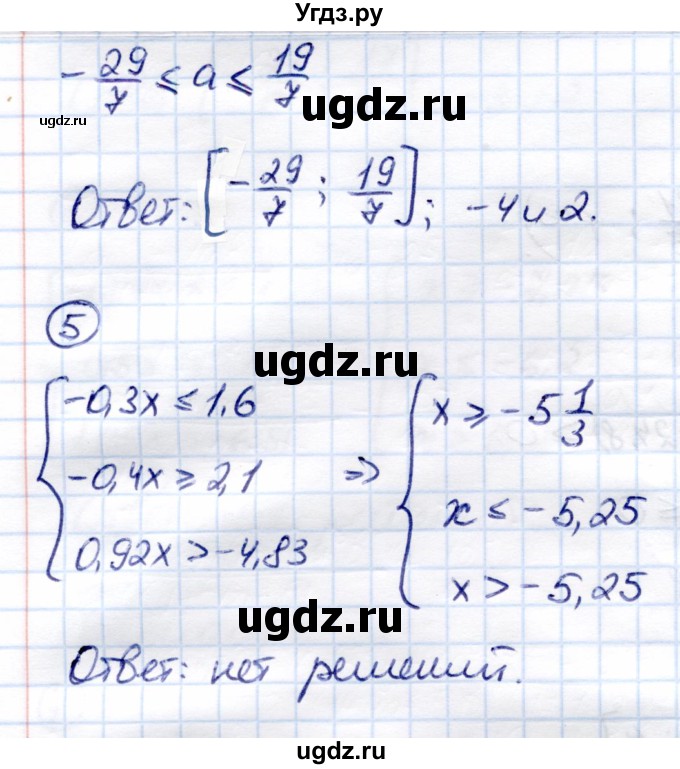 Угдз.ру
-29/7 ≤ a ≤ 19/7
ugdz.ru
ugdz.ru
Ответ: [-29/7; 19/7]; -4 и 2.
5
ugdz.ru
{ -0,3x ≤ 1,6
-0,4x ≥ 2,1
0,92x > -4,83
⇒ { x ≥ -5 1/3
x ≤ -5,25
x > -5,25
ugdz.ru
Ответ: нет решений.
ugdz.ru